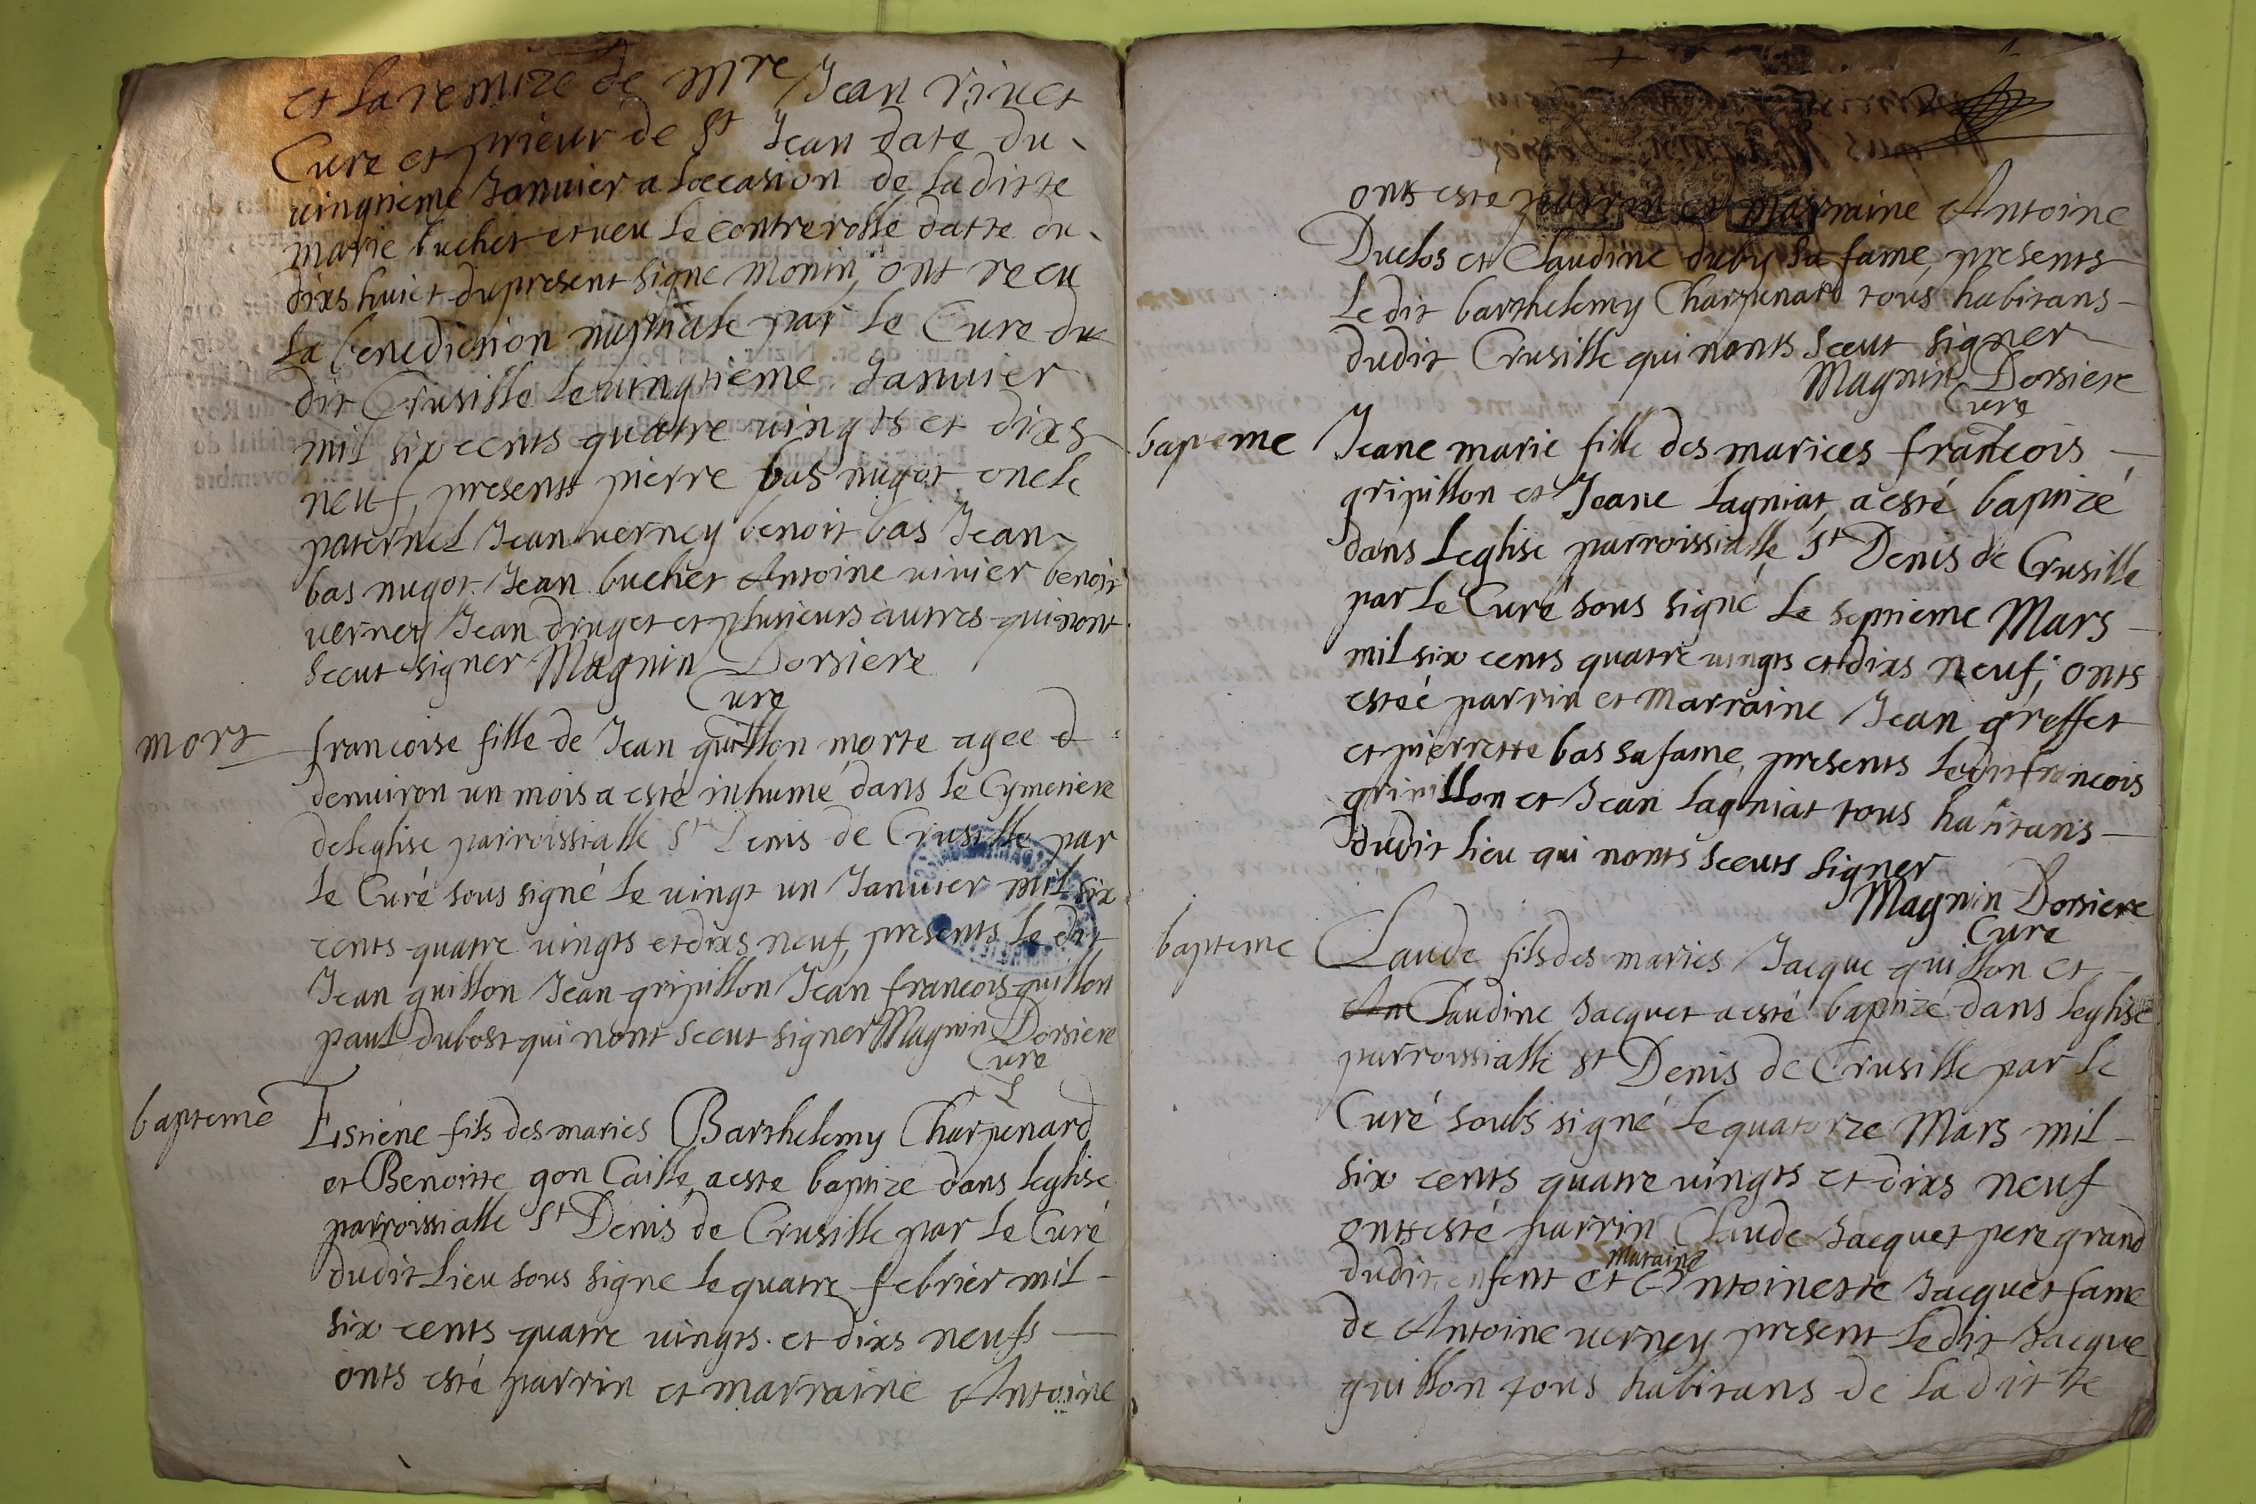 et la remize de Mre Jean rivet
Cure et prieur de St Jean date du
vingtieme Janvier a loccasion de laditte
marie buchet et veu le controlle datte du
dixs huict du present signe monin, ont recu
la benediction nuptiale par le Cure du
dit Crusille le vingtieme Janvier
mil six cents quatre vingts et dixs
neuf, presents pierre bas nugot oncle
paternel Jean verney benoit bas Jean
bas nugot Jean buchet Antoine vivier benoit
verney Jean druget et plusieurs autres qui nont
sceut signer Magnin Dorsiere
Cure
mort francoise fille de Jean guillon morte agee d
denviron un mois a esté inhumé dans le Cymetiere
deleglise parroissialle St Denis de Crusille par
le Curé sous signé le vingt un Janvier mil six
cents quatre vingts et dixs neuf, presents le dit
Jean guillon Jean gripillon Jean francois guillon
paul dubost qui nont sceut signer Magnin Dorsiere
Cure
bapteme Estiene fils des maries Barthelemy Charpenard
et Benoitte gon Caille a este baptize dans leglise
parroissialle St Denis de Crusille par le Curé
dudit lieu sous signe le quatre febrier mil
six cents quatre vingts et dixs neufs
onts esté parrin et marraine Antoine
onts esté parrin et marraine Antoine
Duclos et Claudine duby sa fame, presents
le dit barthelemy Charpenard tous habitans
dudit Crusille qui nonts sceut signer
Magnin Dorsiere
Cure
bapteme Jeane marie fille des mariees francois
gripillon et Jeane lagniat, a esté baptizé
dans leglise parroissialle St Denis de Crusille
par le Curé sous signé le septieme Mars
mil six cents quatre vingts et dixs neuf; onts
esteé parrin et Marraine Jean greffet
et pierrette bas sa fame, presents ledit francois
gripillon et Jean lagniat tous habitans
dudit lieu qui nonts sceuts signer
Magnin Dorsiere
Cure
bapteme Claude fils des maries Jacque guillon et
An Claudine Jacquet a esté baptize dans leglise
parroissialle St Denis de Crusille par le
Curé soubs signé le quatorze Mars mil
six cents quatre vingts et dixs neuf
onts esté parrin Claude Jacquet pere grand
maraine
dudit enfent et Antoinette Jacquet fame
de Antoine verney present ledit Jacque
guillon tous habitans de la ditte